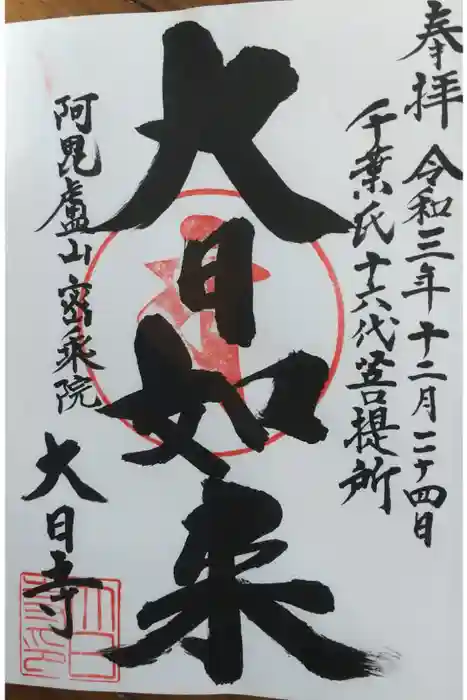 奉拝 令和三年十二月二十四日
千葉氏十六代菩提所
大日如来
阿毘盧山密乗院
大日寺